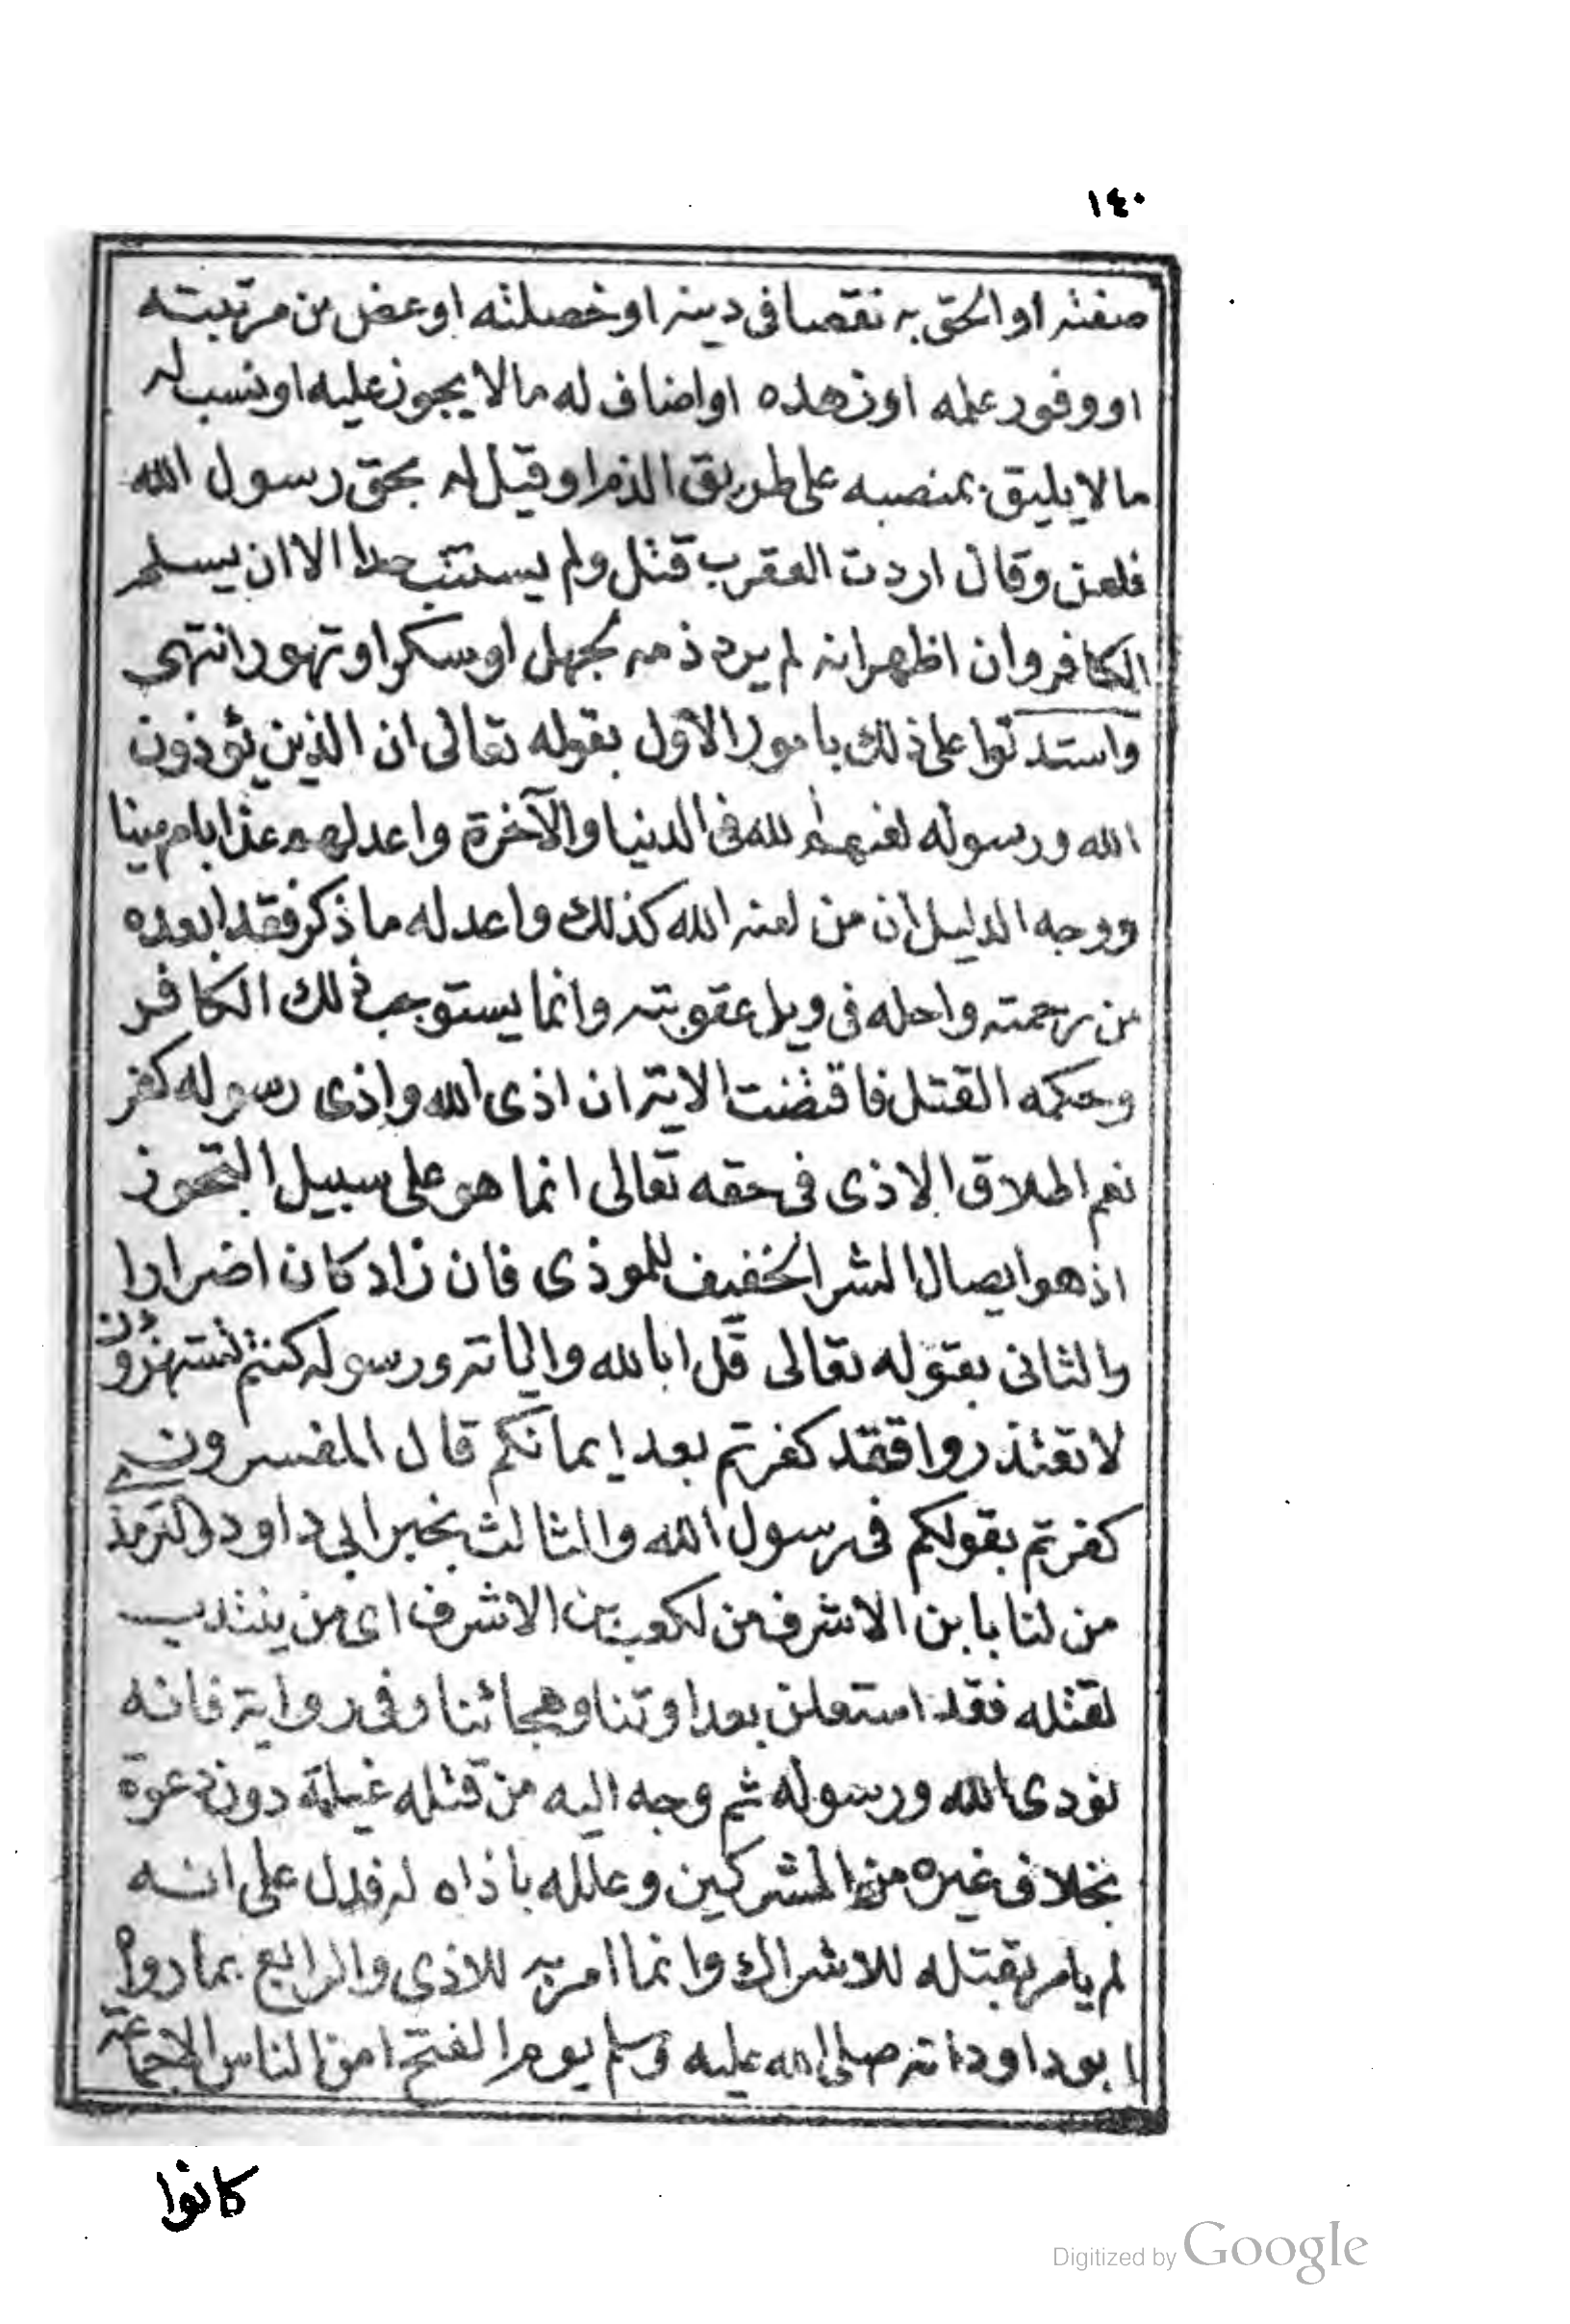 ١٤٠
صفته او الحق به نقصا فى دينه او خصلته او غض من مرتبته
او وفور علمه او زهده او اضاف له ما لا يجوز عليه او نسب له
ما لا يليق بمنصبه على طريق الذم او قيل له بحق رسول الله
فلعن وقال اردت العقرب قتل ولم يستتب حدا الا ان يسلم
الكافر وان اظهر انه لم يرد ذمه لجهل او سكر او تهور انتهى
واستدلوا على ذلك بامور الاول بقوله تعالى ان الذين يؤذون
الله ورسوله لعنهم الله فى الدنيا والآخرة واعد لهم عذابا مهينا
ووجه الدليل ان من لعنه الله كذلك واعد له ما ذكر فقد ابعده
من رحمته واحله فى وبل عقوبته وانما يستوجب ذلك الكافر
وحكمه القتل فاقتضت الاية ان اذى الله واذى رسوله كفر
نعم اطلاق الاذى فى حقه تعالى انما هو على سبيل التجوز
اذ هو ايصال الشر الخفيف للموذى فان زاد كان اضرارا
والثانى بقوله تعالى قل ابالله واياته ورسوله كنتم تستهزؤن
لا تعتذروا قد كفرتم بعد ايمانكم قال المفسرون
كفرتم بقولكم فى رسول الله والثالث بخبر ابى داود والترمذ
من لنا بابن الاشرف من لكعب بن الاشرف اى من ينتدب
لقتله فقد استعلن بعداوتنا وهجائنا وفى رواية فانه
يوذى الله ورسوله ثم وجه اليه من قتله غيلة دون دعوة
بخلاف غيره من المشركين وعلله باذاه له فدل على انه
لم يامر بقتله للاشراك وانما امر به للاذى والرابع بما رواه
ابو داود انه صلى الله عليه وسلم يوم الفتح امن الناس الا جماعة
كانوا
Digitized by Google